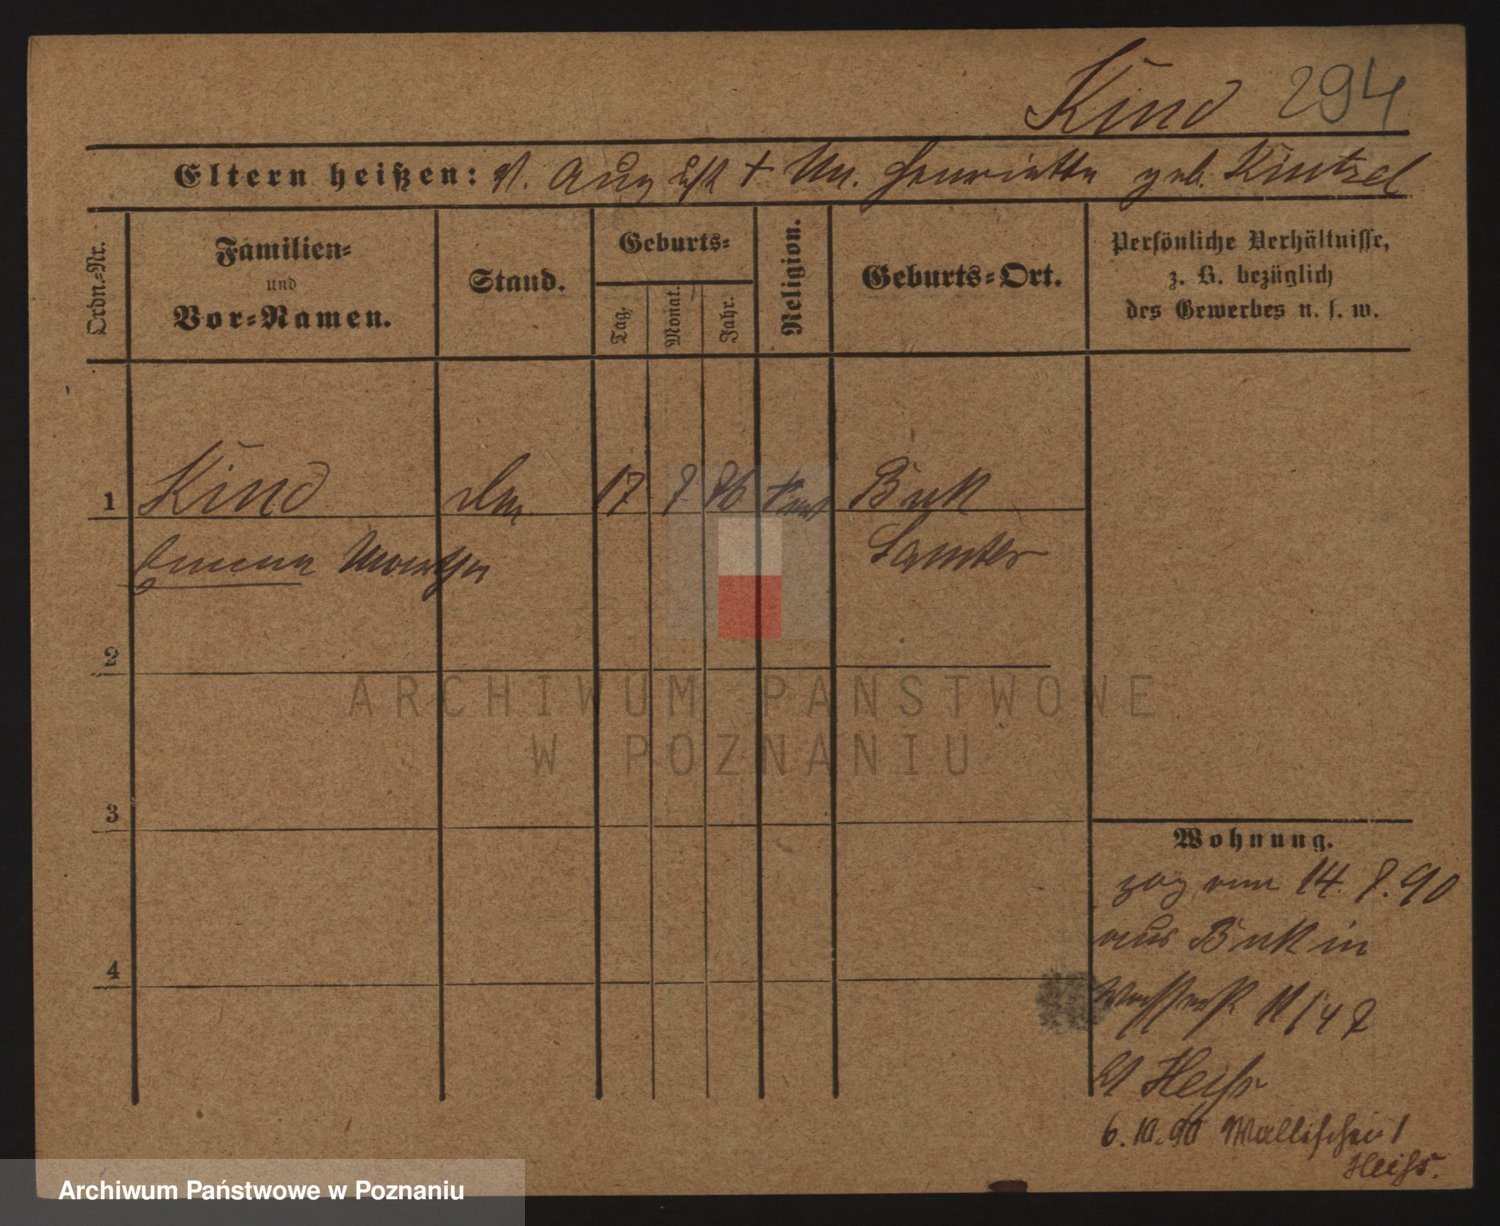 Kind 294
Eltern heißen: V. August + Mu. Henriette geb. Kintzel
Ordn.-Nr.
Familien-
und
Vor-Namen.
Stand.
Geburts-
Tag.
Monat.
Jahr.
Religion.
Geburts-Ort.
Persönliche Verhältnisse,
z. B. bezüglich
des Gewerbes u. s. w.
1 Kind 17 86 Buk
Emma Martha Samter
2
3
4
Wohnung.
zog am 14. 8. 90
aus Buk in
Wasserstr
Heiss
6.10.90 Wallischei 1
Heiss.
ARCHIWUM PAŃSTWOWE
W POZNANIU
Archiwum Państwowe w Poznaniu